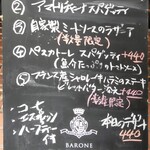 ② アマトリチャーナ スパゲッティ
③ 自家製 ミートソースのラザーニャ
(数量限定)
④ ペスカトーレ スパゲッティ +440
(魚介たっぷりトマトソース)
⑤ フランス産 シャロレー牛ハラミのステーキ
(数量限定)
・コーヒー
・エスプレッソ
・ハーブティー
付
本日のデザート
440
BARONE